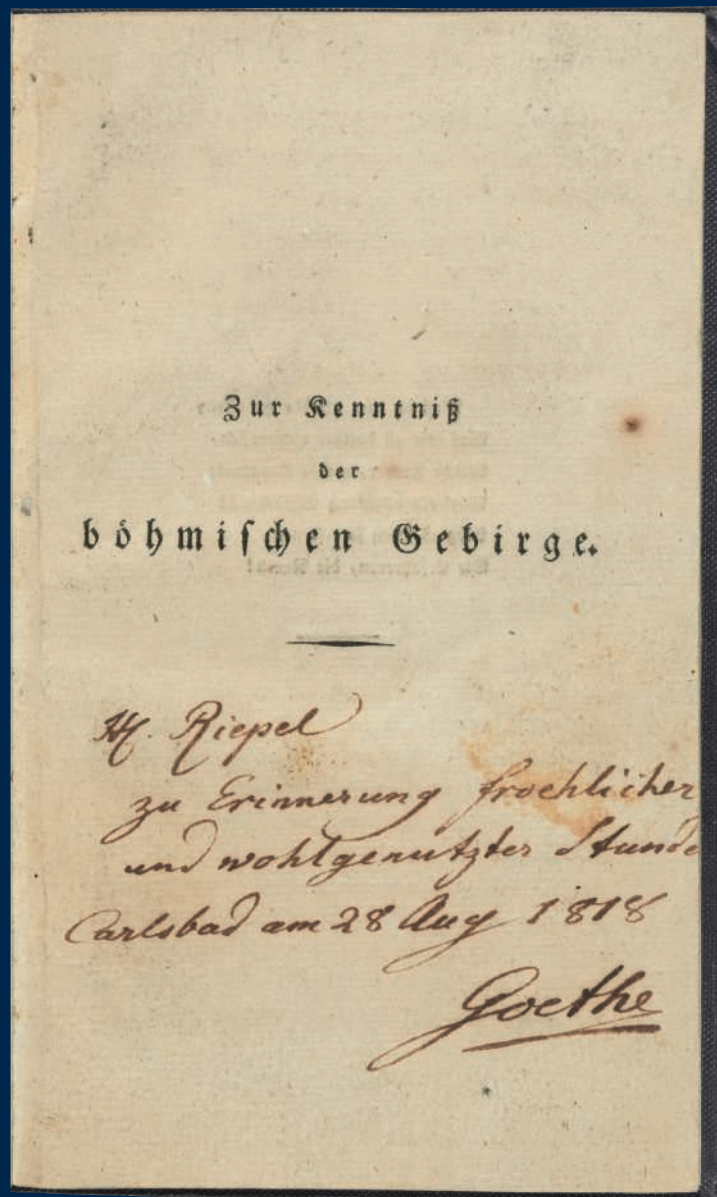 Zur Kenntniß
der
böhmischen Gebirge.
H. Riepel
zu Erinnerung froehlicher
und wohlgenutzter Stunde
Carlsbad am 28 Aug 1818
Goethe